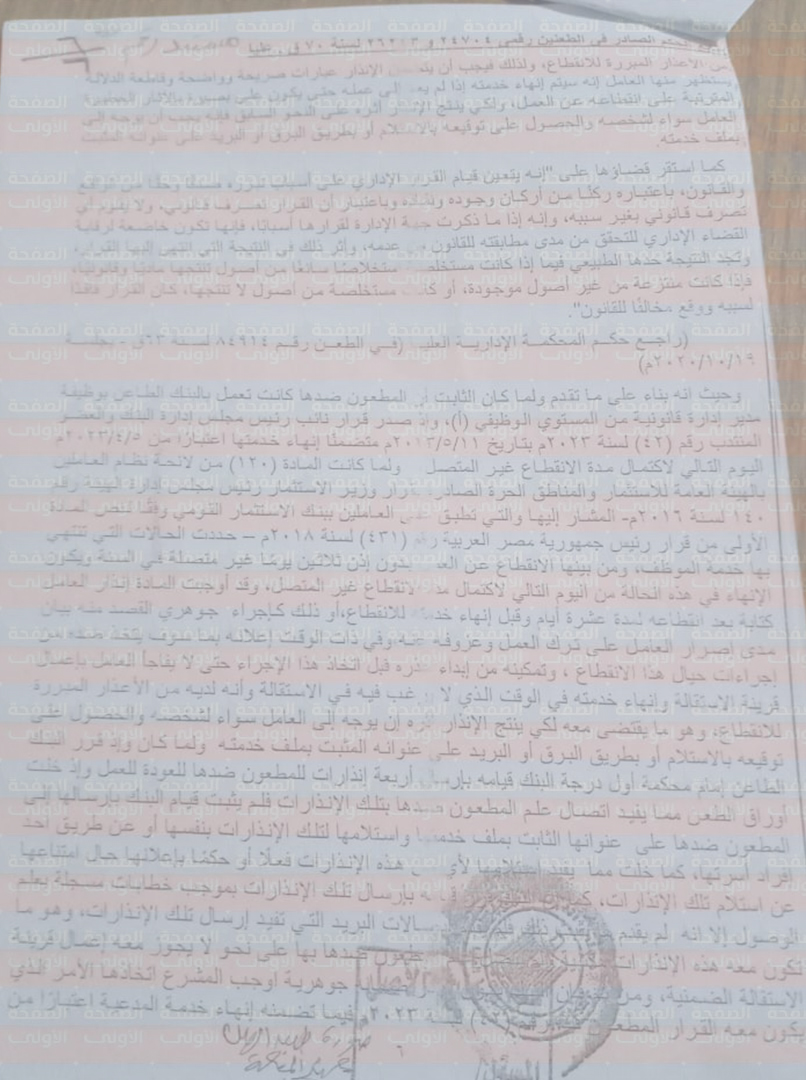 الحكم الصادر في الطعنين رقمي ٢٤٧٠٤ و ٢٦٢١٣ لسنة ٧٠ ق. عليا
من الأعذار المبررة للانقطاع، ولذلك فيجب أن الإنذار عبارات صريحة وواضحة وقاطعة الدلالة
يستظهر منها العامل إنه سيتم إنهاء خدمته إذا لم يعد إلى عمله حتى يكون على بصيرة بالآثار
المترتبة على انقطاعه عن العمل، ولكي ينتج الإنذار أثره على النحو السابق فإنه يجب أن يوجه إلى
العامل سواء لشخصه والحصول على توقيعه بالاستلام أو بطريق البرق أو البريد على عنوانه المثبت
بملف خدمته.
كما استقر قضاؤها على "إنه يتعين قيام القرار الإداري على أسباب تبرره صدقًا وحقًا من الواقع
والقانون، باعتباره ركنًا من أركان وجوده وباعتبار أن القرار تصرف قانوني، ولا يقوم أي
تصرف قانوني بغير سببه، وإنه إذا ما ذكرت جهة الإدارة لقرارها أسبابًا، فإنها تكون خاضعة لرقابة
القضاء الإداري للتحقق من مدى مطابقته للقانون من عدمه، وأثر ذلك في النتيجة التي انتهى إليها القرار،
وتجد النتيجة حدها الطبيعي فيما إذا كانت مستخلصة استخلاصًا سائغًا من أصول تنتجها ماديًا وقانونيًا،
فإذا كانت منتزعة من غير أصول موجودة، أو كانت مستخلصة من أصول لا تنتجها، كان القرار فاقدًا
لسببه ووقع مخالفًا للقانون".
(راجع حكم المحكمة الإدارية العليا (في الطعن رقم ٨٤٩١٤ لسنة ٦٣ق - بجلسة
٢٠٢٠/١٠/١٩م)
وحيث انه بناء على ما تقدم ولما كان الثابت أن المطعون ضدها كانت تعمل بالبنك الطاعن بوظيفة
مدير إدارة قانونية من المستوي الوظيفي (أ)، وإذ صدر قرار نائب رئيس مجلس إدارة البنك والعضو
المنتدب رقم (٤٢) لسنة ٢٠٢٣م بتاريخ ٢٠١٣/٥/١١م متضمنًا إنهاء خدمتها اعتبارًا من ٢٠٢٣/٤/٥م
اليوم التالي لاكتمال مدة الانقطاع غير المتصل ولما كانت المادة (١٢٠) من لائحة نظام العاملين
بالهيئة العامة للاستثمار والمناطق الحرة الصادرة بقرار وزير الاستثمار رئيس مجلس إدارة الهيئة رقم
١٤٠ لسنة ٢٠١٦م- المشار إليها والتي تطبق على العاملين ببنك الاستثمار القومي وفقًا لنص المادة
الأولى من قرار رئيس جمهورية مصر العربية رقم (٤٣١) لسنة ٢٠١٨م – حددت الحالات التي تنتهي
بها خدمة الموظف، ومن بينها الانقطاع عن العمل بدون إذن ثلاثين يومًا غير متصلة في السنة ويكون
الإنهاء في هذه الحالة من اليوم التالي لاكتمال مدة الانقطاع غير المتصل، وقد أوجبت المادة إنذار العامل
كتابة بعد انقطاعه لمدة عشرة أيام وقبل إنهاء خدمته للانقطاع،أو ذلك كإجراء جوهري القصد منه بيان
مدى إصرار العامل على ترك العمل وعزوفه عنه وفي ذات الوقت إعلانه بما سوف يتخذ ضده من
إجراءات حيال هذا الانقطاع ، وتمكينه من إبداء عذره قبل اتخاذ هذا الإجراء حتى لا يفاجأ العامل بإعمال
قرينة الاستقالة وإنهاء خدمته في الوقت الذي لا يرغب فيه في الاستقالة وأنه لديه من الأعذار المبررة
للانقطاع، وهو ما يقتضي معه لكي ينتج الإنذار أثره أن يوجه إلى العامل سواء لشخصه والحصول على
توقيعه بالاستلام أو بطريق البرق أو البريد على عنوانه المثبت بملف خدمته ولما كان وإذ قرر البنك
الطاعن إمام محكمة أول درجة البنك قيامه بإرسال أربعة إنذارات للمطعون ضدها للعودة للعمل وإذ خلت
أوراق الطعن مما يفيد اتصال علم المطعون ضدها بتلك الإنذارات فلم يثبت قيام البنك بإرسالها إلى
المطعون ضدها على عنوانها الثابت بملف خدمتها واستلامها لتلك الإنذارات بنفسها أو عن طريق احد
افراد أسرتها، كما خلت مما يفيد استلامها لأي من هذه الإنذارات فعلًا أو حكمًا بإعلانها حال امتناعها
عن استلام تلك الإنذارات، بإرسال تلك الإنذارات بموجب خطابات مسجلة بعلم
الوصول إلا انه لم يقدم ذلك إرسالات البريد التي تفيد إرسال تلك الإنذارات، وهو ما
تكون معه هذه الإنذارات المطعون ضدها بها على نحو لا يجوز معه إعمال قرينة
الاستقالة الضمنية، ومن جوهرية اوجب المشرع اتخاذها الأمر الذي
يكون معه القرار المطعون رقم (٤٢) لسنة ٢٠٢٣م فيما تضمنه إنهاء خدمة المدعية اعتبارًا من
٦